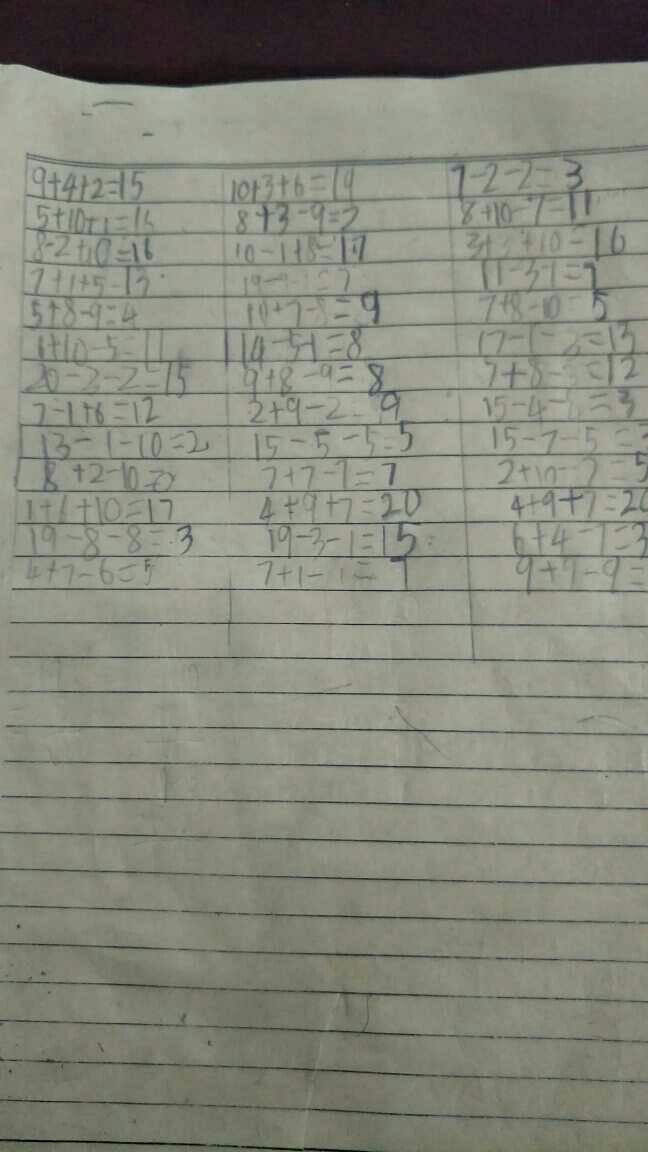 9+4+2=15 10+3+6=19 7-2-2=3
5+10+1=16 8+3-9=2 8+10-7=11
8-2+10=16 10-1+8=17 3+3+10=16
7+1+5=13 11-3-1=7
5+8-9=4 10+7-8=9 7+8-10=5
1+10-5=11 14-5-1=8 17-1-3=13
20-2-2=15 9+8-9=8 7+8-3=12
7-1+6=12 2+9-2=9 15-4-8=3
13-1-10=2 15-5-5=5 15-7-5=3
8+2-10=0 7+7-7=7 2+10-7=5
1+6+10=17 4+9+7=20 4+9+7=20
19-8-8=3 19-3-1=15 6+4-7=3
4+7-6=5 7+1-1=7 9+7-9=